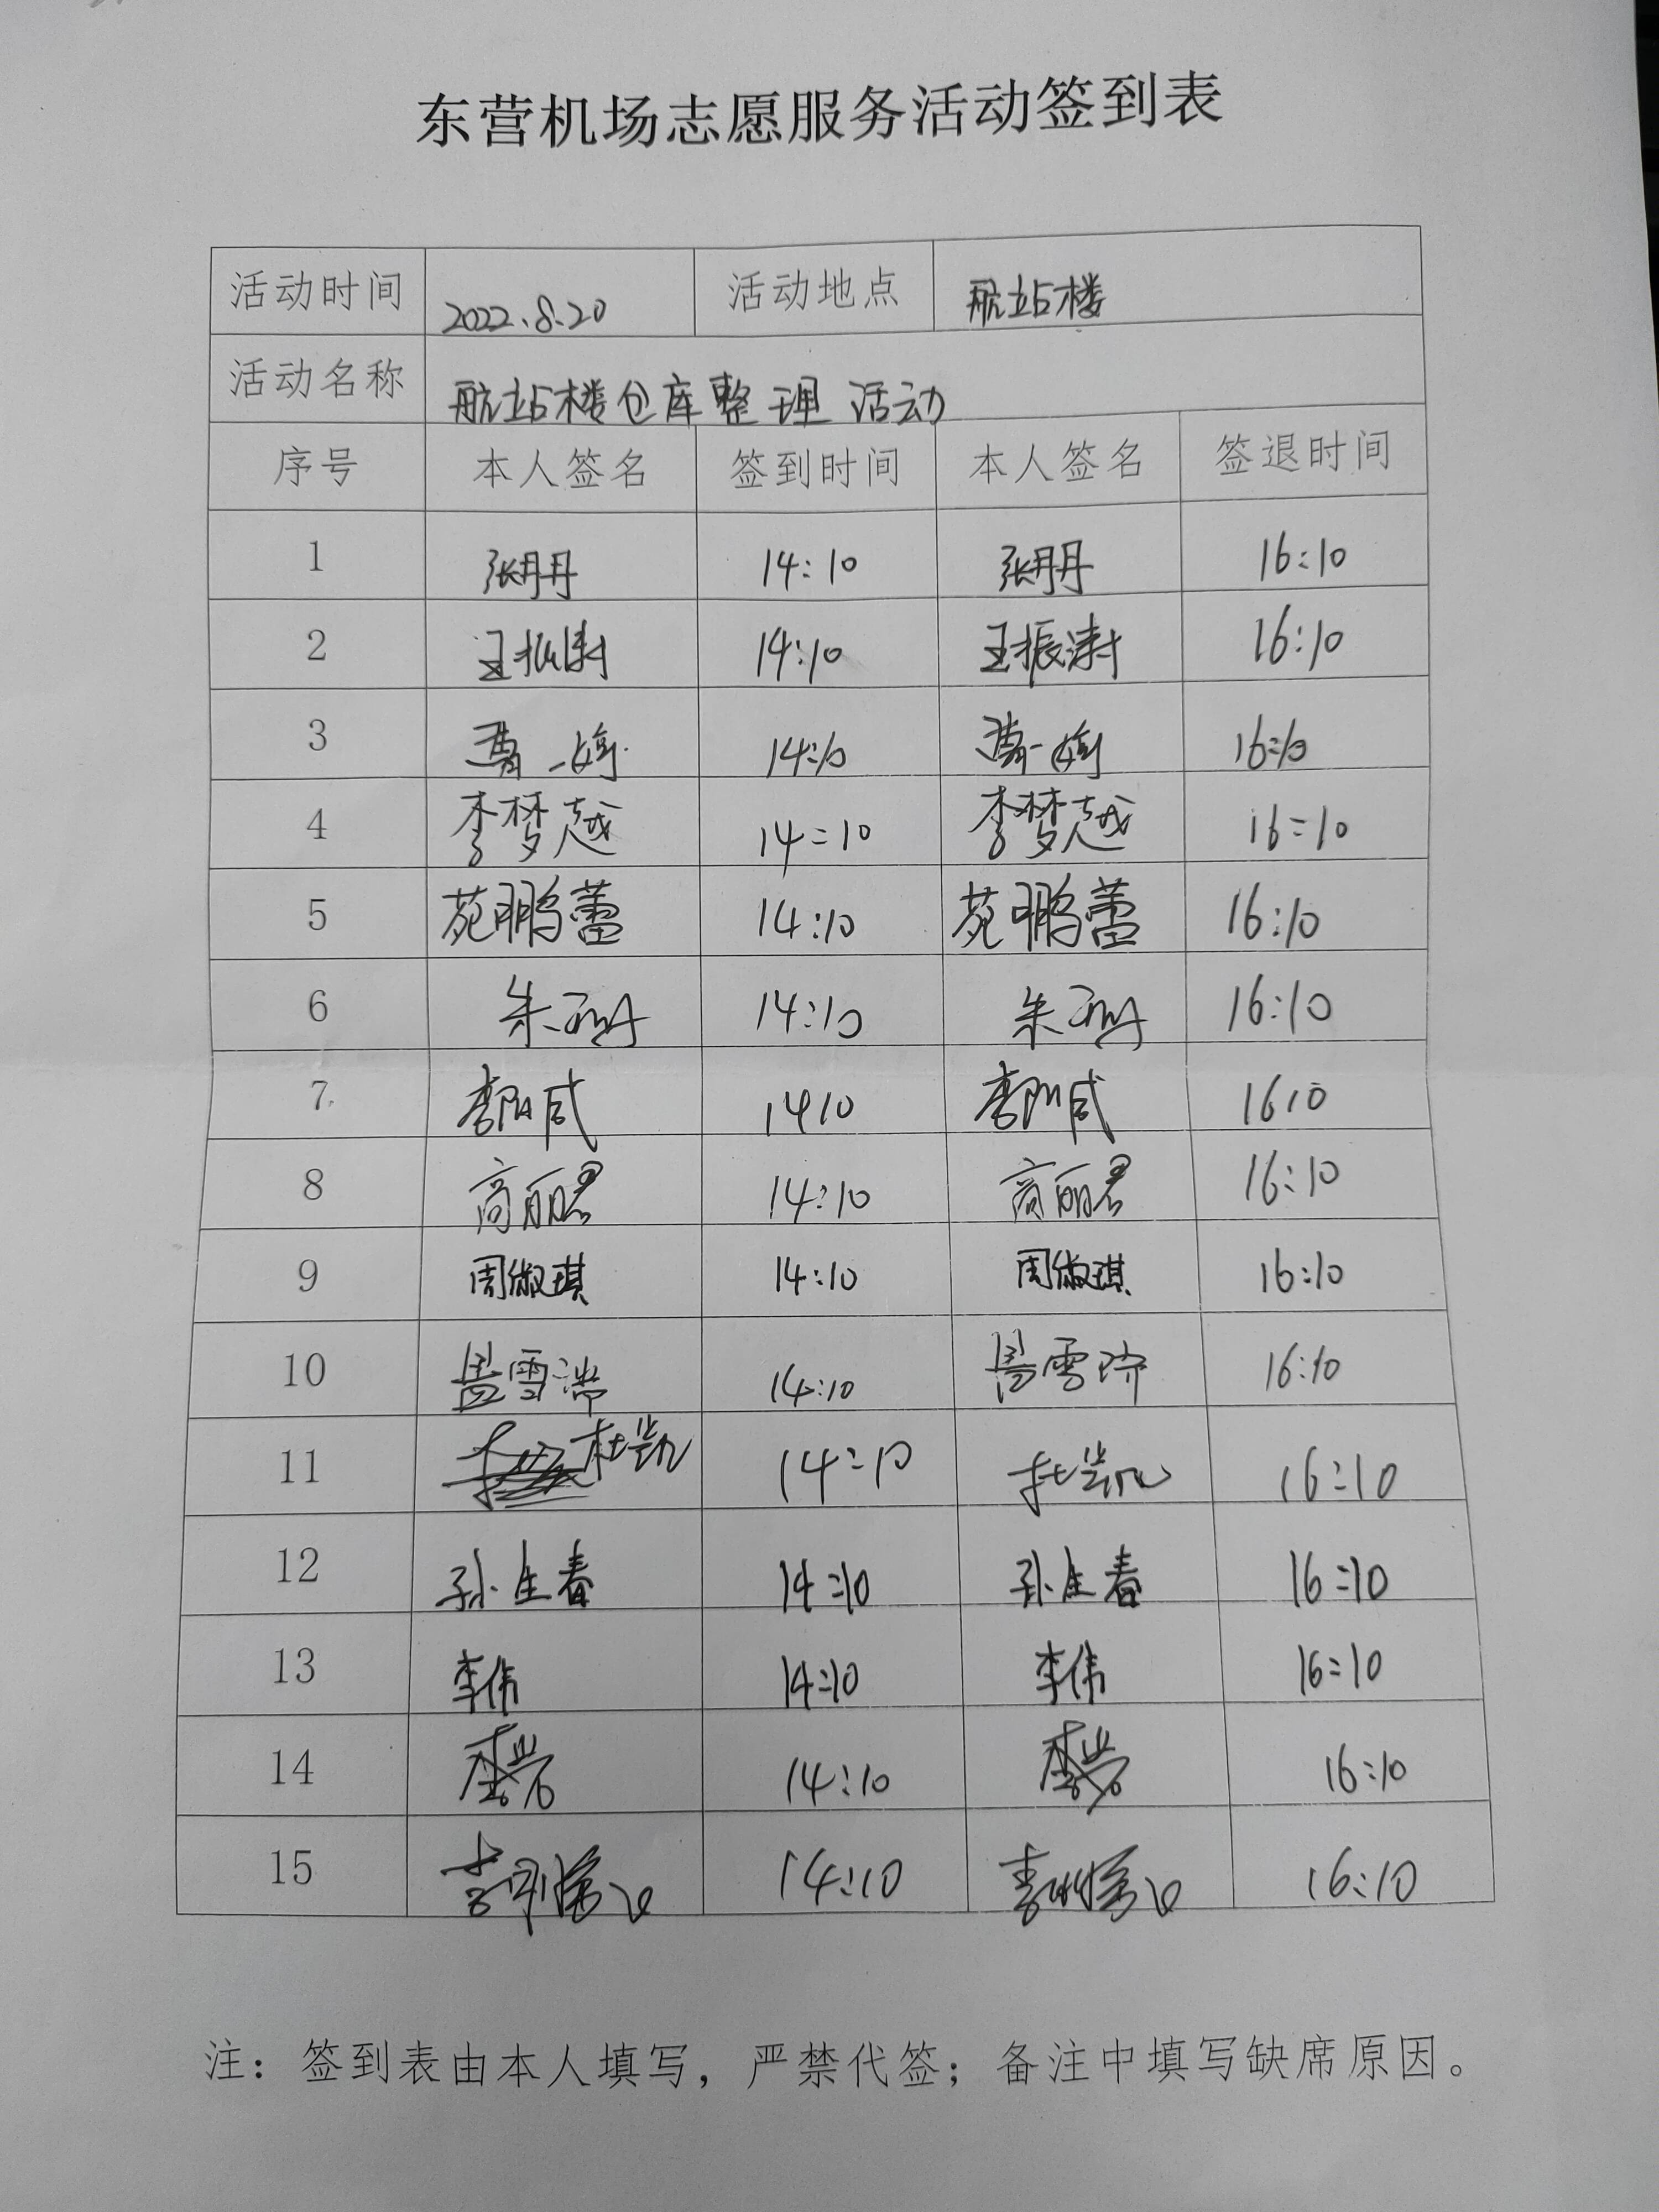 东营机场志愿服务活动签到表
活动时间 2022.8.20 活动地点 航站楼
活动名称 航站楼仓库整理活动
序号 本人签名 签到时间 本人签名 签退时间
1 张丹丹 14:10 张丹丹 16:10
2 王振澍 14:10 王振澍 16:10
3 曹一婷 14:10 曹一婷 16:10
4 李梦越 14:10 李梦越 16:10
5 苑鹏蕾 14:10 苑鹏蕾 16:10
6 朱 14:10 朱 16:10
7 李阳威 1410 李阳威 1610
8 高丽君 14:10 高丽君 16:10
9 周俶琪 14:10 周俶琪 16:10
10 雪 14:10 雪 16:10
11 杜凯 14:10 杜凯 16:10
12 孙生春 14:10 孙生春 16:10
13 李伟 14:10 李伟 16:10
14 李 14:10 李 16:10
15 14:10 16:10
注：签到表由本人填写，严禁代签；备注中填写缺席原因。